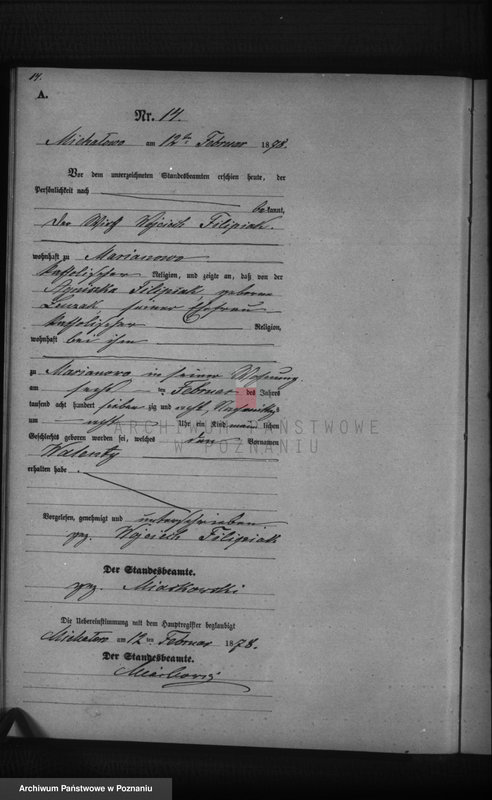 14.
A.
Nr. 14.
Michałowo am 12ten Februar 1878.
Vor dem unterzeichneten Standesbeamten erschien heute, der
Persönlichkeit nach
bekannt,
der Wirth Wojciech Filipiak.
wohnhaft zu Marianowo
katholischer Religion, und zeigte an, daß von der
Agnieszka Filipiak geborene
seiner Ehefrau
katholischer Religion,
wohnhaft bei ihm
zu Marianowo in seiner Wohnung
am Februar des Jahres
tausend acht hundert siebenzig und acht, Nachmittags
um acht Uhr ein Kind männlichen
Geschlechts geboren worden sei, welches den Vornamen
Walenty
erhalten habe.
Vorgelesen, genehmigt und unterschrieben.
gez. Wojciech Filipiak
Der Standesbeamte.
gez. Miaskowski
Die Uebereinstimmung mit dem Hauptregister beglaubigt
Michałowo am 12ten Februar 1878.
Der Standesbeamte.
ARCHIWUM PAŃSTWOWE
W POZNANIU
Archiwum Państwowe w Poznaniu